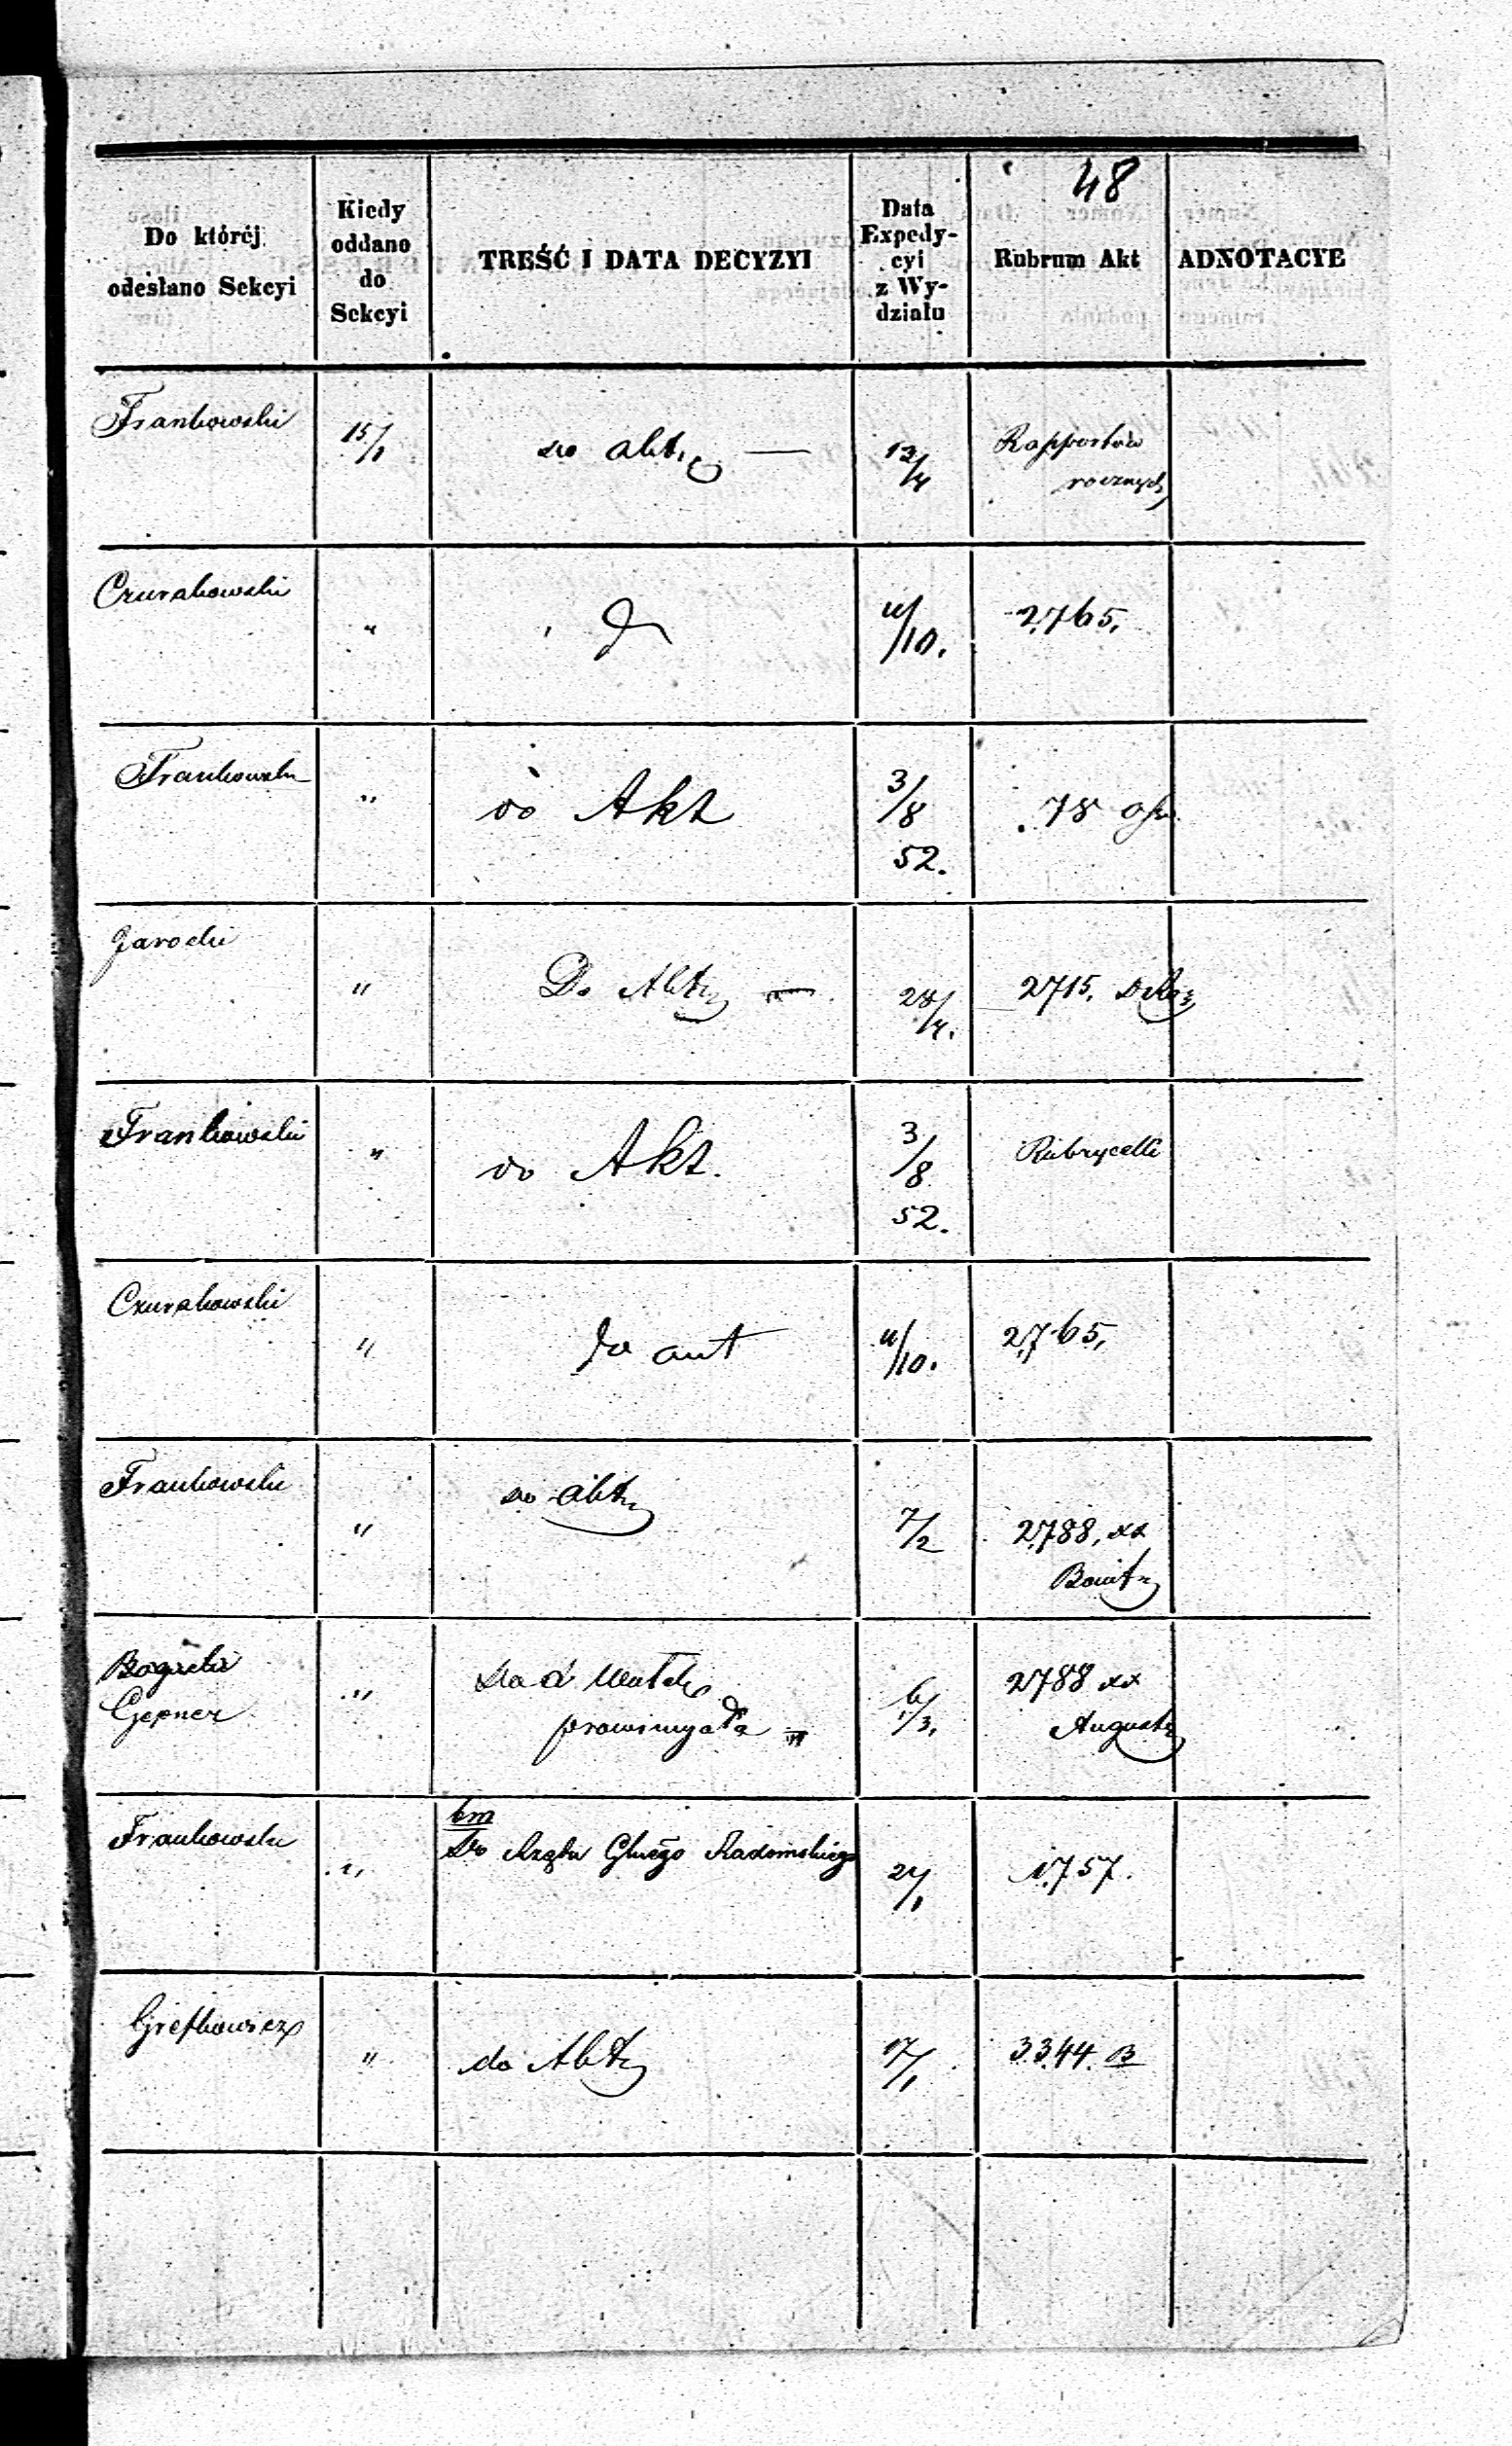 48
Do którćj odesłano Sekcyi
Kiedy oddano do Sekcyi
TREŚĆ I DATA DECYZYI
Data Expedycyi z Wydziału
Rubrum Akt
ADNOTACYE
Frankowski 15/1 do akt 12/4 Rapportów
rocznych
Czurakowski " 11/10. 2765.
Frankowski " do Akt 3/8 52. 78
Jarocki " Do Akt — 28/4. 2715.
Frankowski " do Akt. 3/8 52. Rubrycelli
Czurakowski " do 11/10. 2765,
Frankowski " do akt 7/2 2788, xx
Gepner " 6/3. 2788 xx
August
Frankowski " Do Rządu Radomskiego 24/1 1757.
" do Akt 17/1 3344. B